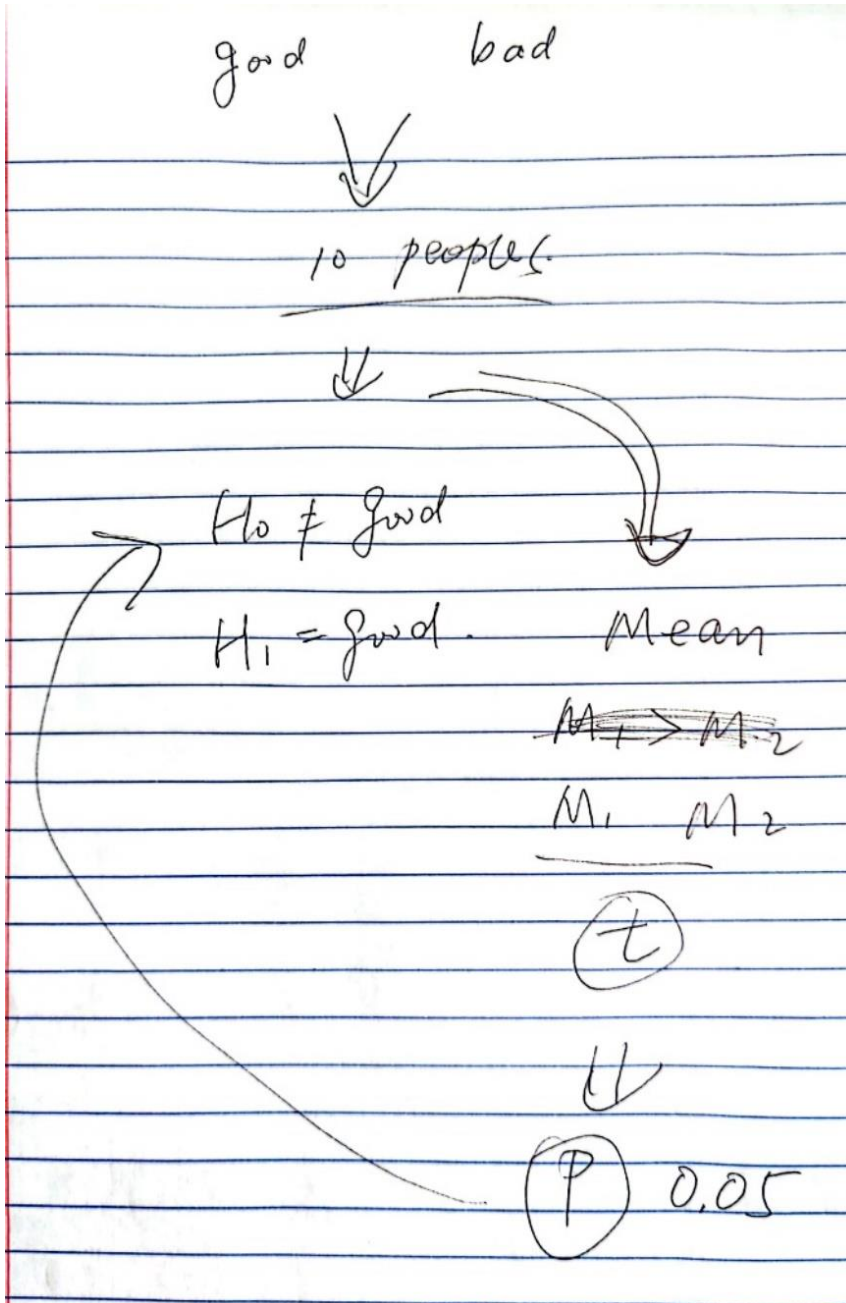 good bad
10 peoples.
H0 ≠ good
H1 = good.
Mean
M1 > M2
M1 M2
t
P 0.05